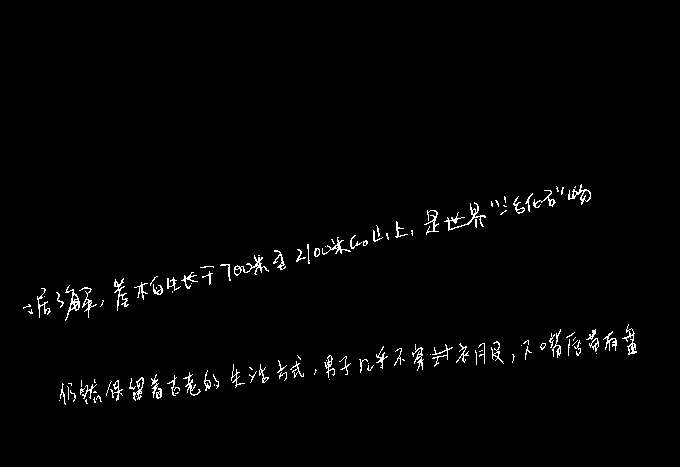 据了解，崖柏生长于700米至2100米的山上，是世界“活化石”物
仍然保留着古老的生活方式，男子几乎不穿衣服，只臀后带有盘